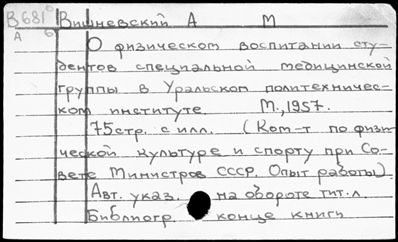 В681 Вишневский А М
А 6
О физическом воспитании сту-
дентов специальной медицинской
группы в Уральском политехничес-
ком институте. М., 1957.
75 стр. с илл. (Ком-т по физи-
ческой культуре и спорту при Со-
вете Министров СССР. Опыт работы).
Авт. указ. на обороте тит. л.
Библиогр. конце книги